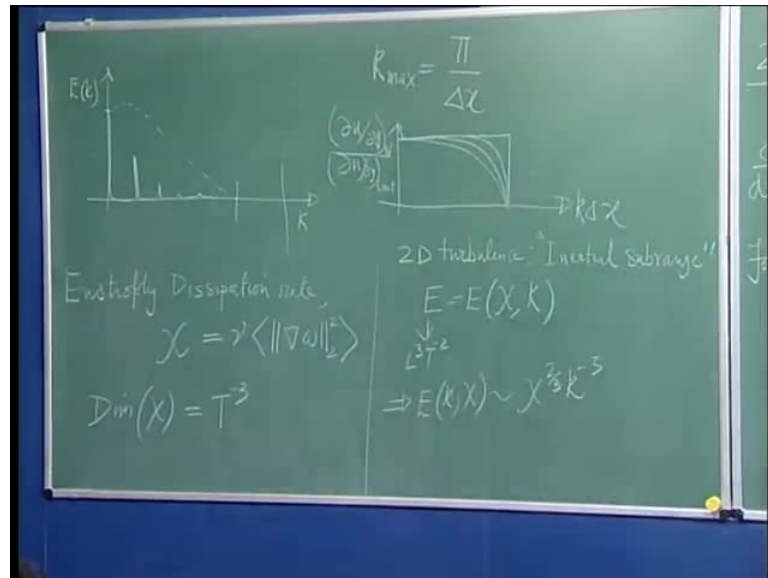 E(k)
k
k_max = π / Δx
(∂u/∂x)
kΔx
Enstrophy Dissipation rate,
χ = ν⟨||∇ω||₂²⟩
Dim(χ) = T⁻³
2D turbulence: "Inertial subrange"
E = E(χ, k)
↓
L³T⁻²
⇒ E(k, χ) ~ χ^{2/3} k⁻³
2
d